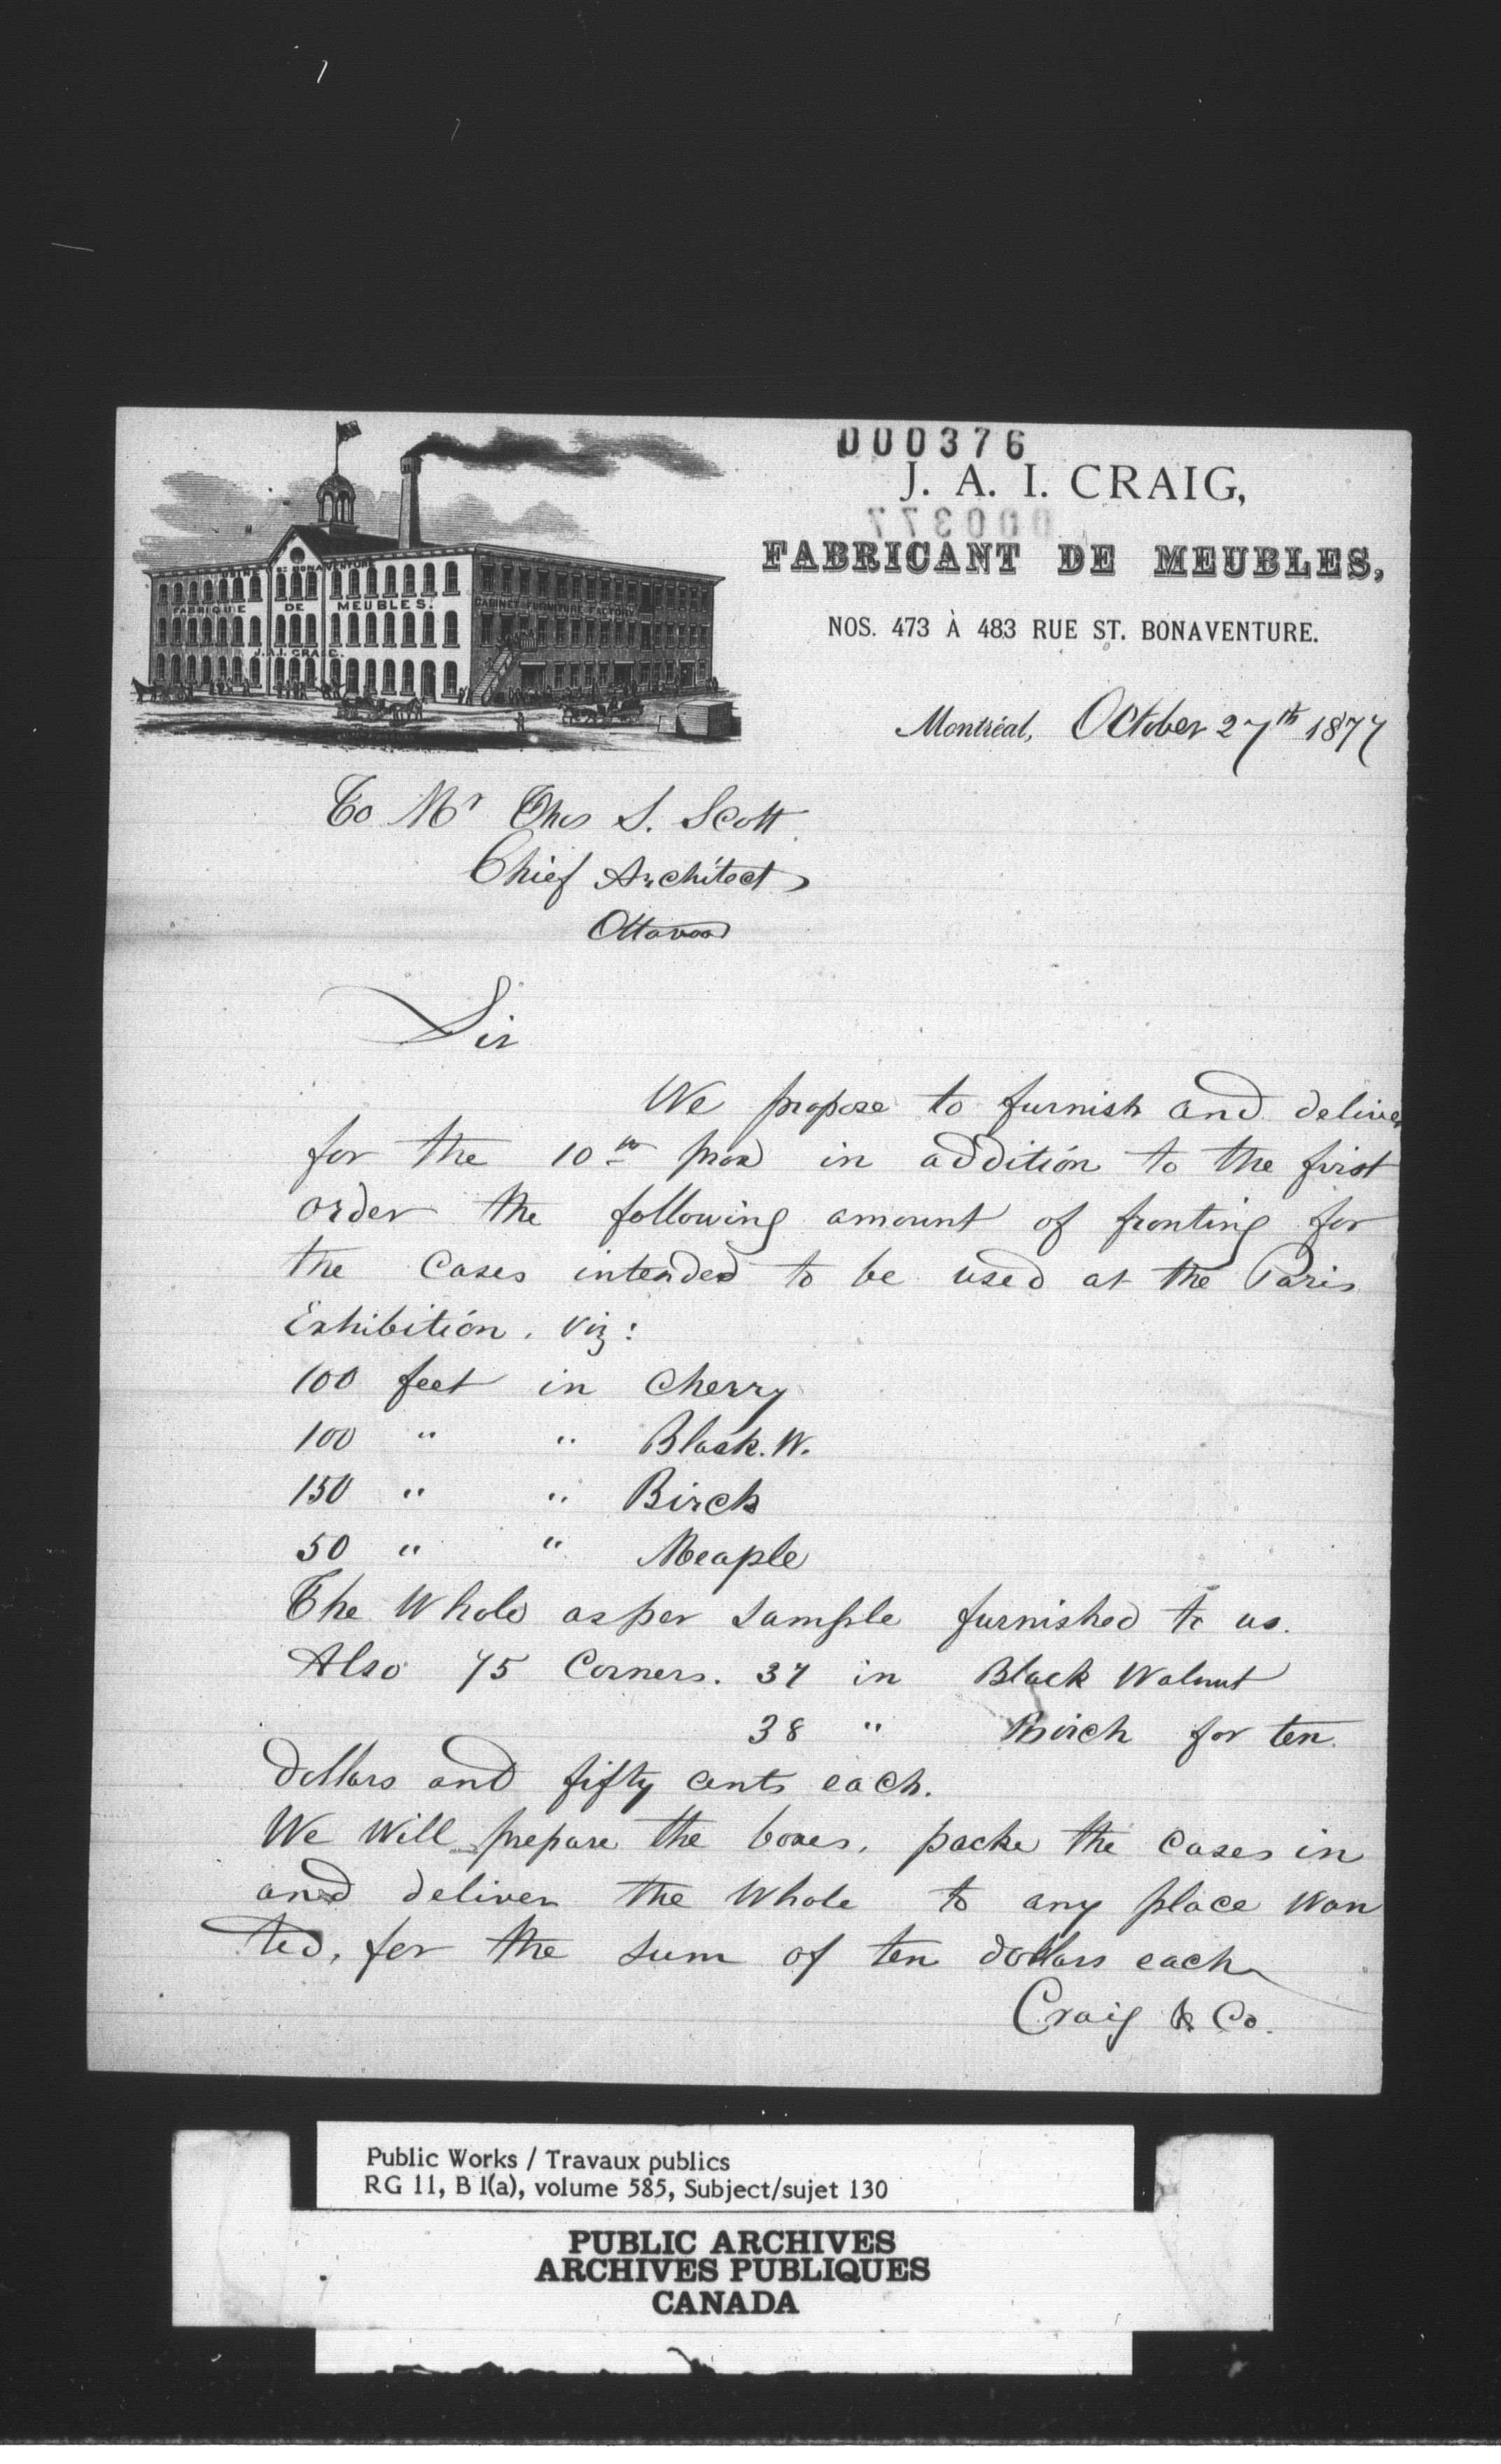 000376
J. A. I. CRAIG,
000377
FABRICANT DE MEUBLES,
NOS. 473 À 483 RUE ST. BONAVENTURE.
USINE ST BONAVENTURE
FABRIQUE DE MEUBLES.
CABINET FURNITURE FACTORY
J.A.I. CRAIG.
Montréal, October 27th 1877
To Mr Thos S. Scott
Chief Architect
Ottawa
Sir
We propose to furnish and deliver
for the 10th prox in addition to the first
order the following amount of fronting for
the Cases intended to be used at the Paris
Exhibition. Viz:
100 feet in Cherry
100 " " Black. W.
150 " " Birch
50 " " Meaple
The Whole as per sample furnished to us.
Also 75 Corners. 37 in Black Walnut
38 " Birch for ten
dollars and fifty cents each.
We Will prepare the boxes, packe the Cases in
and deliver the Whole to any place Wan
ted, for the sum of ten dollars each
Craig & Co.
Public Works / Travaux publics
RG 11, B 1(a), volume 585, Subject/sujet 130
PUBLIC ARCHIVES
ARCHIVES PUBLIQUES
CANADA